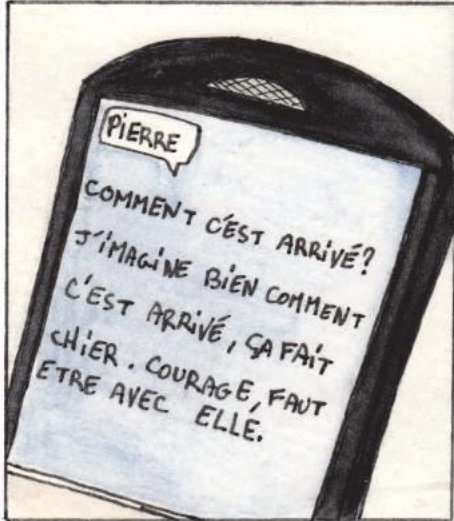 PIERRE
COMMENT C'EST ARRIVÉ?
J'IMAGINE BIEN COMMENT
C'EST ARRIVÉ, ÇA FAIT
CHIER. COURAGE, FAUT
ETRE AVEC ELLE.